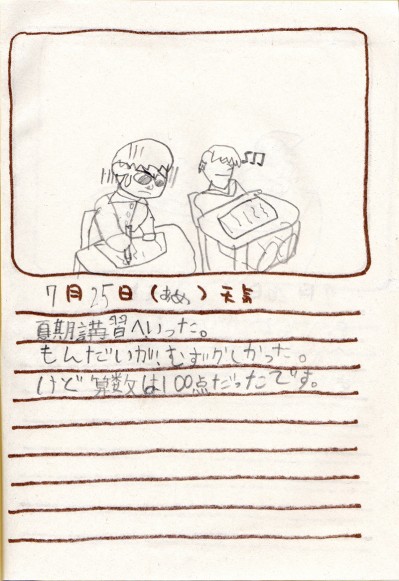 ♪♫
7月25日(あめ)天気
夏期講習へいった。
もんだいが、むずかしかった。
けど算数は100点だったです。